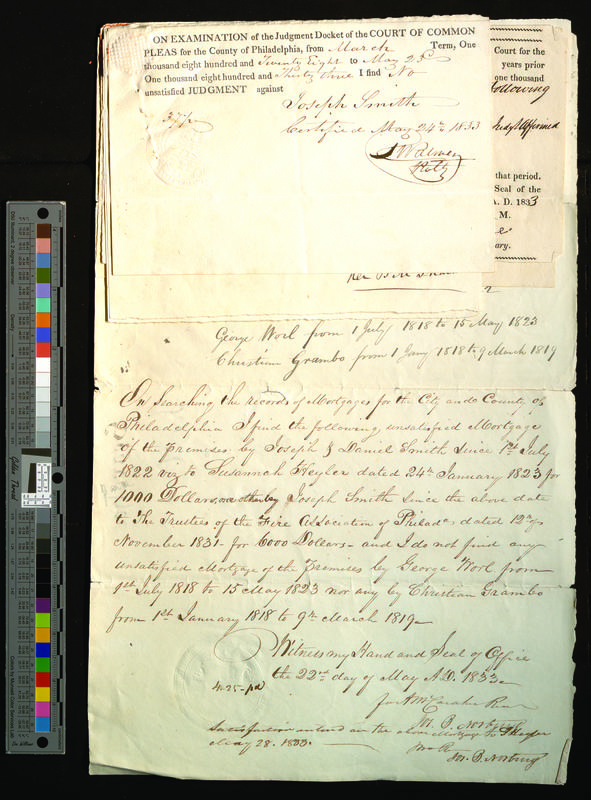 ON EXAMINATION of the Judgment Docket of the COURT OF COMMON
PLEAS for the County of Philadelphia, from March Term, One
thousand eight hundred and Twenty Eight to May 23d
One thousand eight hundred and Thirty three I find No
unsatisfied JUDGMENT against
Joseph Smith
Certified May 24th 1833
37½
Proty
Court for the
years prior
one thousand
following
Judgt Affirmed
that period.
Seal of the
A. D. 1833
M.
ary.
George Worl from 1 July 1818 to 15 May 1823
Christian Grambo from 1 Jany 1818 to 9 March 1819
On Searching the records of Mortgages for the City and County of
Philadelphia I find the following unsatisfied Mortgage
of the Premises by Joseph & Daniel Smith Since 1st July
1822 viz to Susannah Heyler dated 24th January 1823 for
1000 Dollars, one other by Joseph Smith since the above date
to The Trustees of the Fire Association of Philada dated 12th of
November 1831 for 6000 Dollars and I do not find any
unsatisfied Mortgage of the Premises by George Worl from
1st July 1818 to 15 May 1823 nor any by Christian Grambo
from 1st January 1818 to 9th March 1819
Witness my Hand and Seal of Office
the 22nd day of May A.D. 1833
4.25 pd
Satisfaction entered on the above Mortgage to S Heyler
May 28. 1833.
Jos. B. Norbury